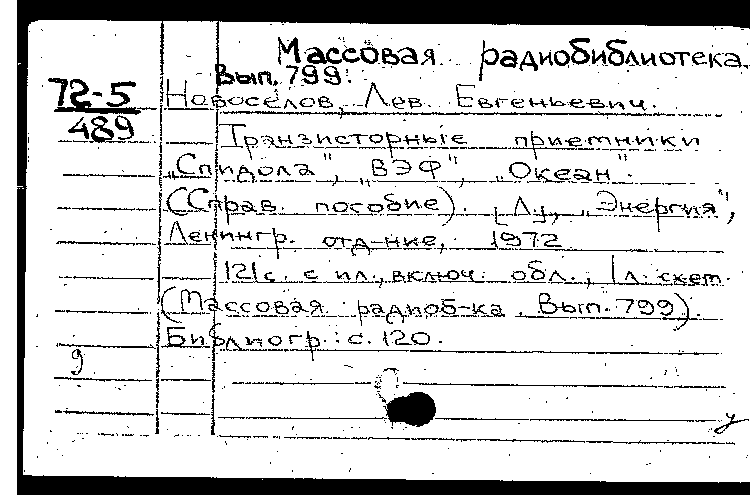 Массовая радиобиблиотека.
Вып. 799.
72-5
489
Новоселов, Лев Евгеньевич.
Транзисторные приемники
„Спидола", „ВЭФ", „Океан".
(Справ. пособие). [Л.], „Энергия",
Ленингр. отд-ние, 1972
121 с. с ил., включ. обл.; 1 л. схем.
(Массовая радиоб-ка. Вып. 799).
Библиогр.: с. 120.
9
у